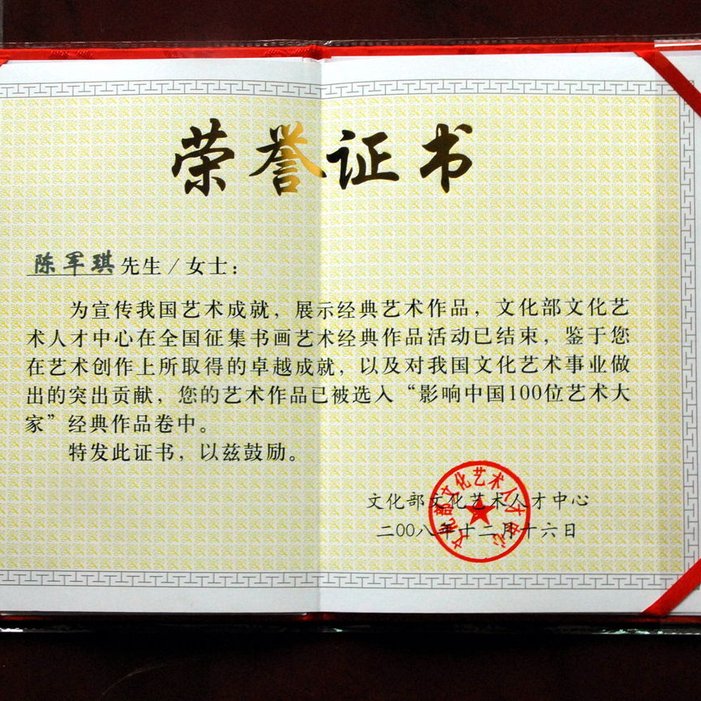 荣誉证书
陈军琪 先生／女士：
为宣传我国艺术成就，展示经典艺术作品，文化部文化艺
术人才中心在全国征集书画艺术经典作品活动已结束，鉴于您
在艺术创作上所取得的卓越成就，以及对我国文化艺术事业做
出的突出贡献，您的艺术作品已被选入“影响中国100位艺术大
家”经典作品卷中。
特发此证书，以兹鼓励。
文化部文化艺术人才中心
二00八年十二月十六日
文化部文化艺术人才中心